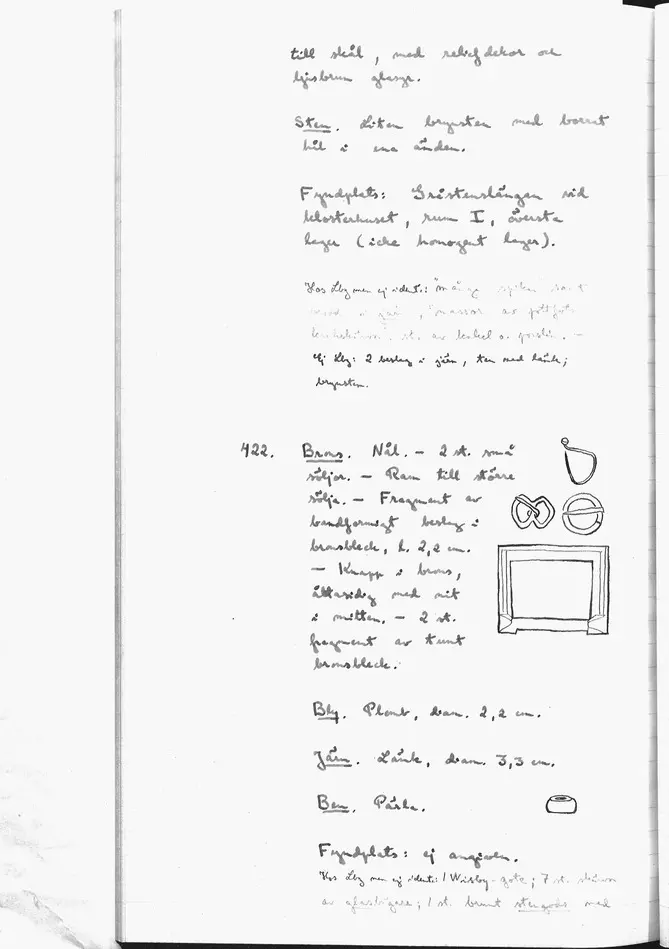 till skål, med reliefdekor och
ljusbrun glasyr.
Sten. Liten brynsten med borrat
hål i ena änden.
Fyndplats: Gråstenslängan vid
klosterhuset, rum I, översta
lager (icke homogent lager).
Hos Lbg men ej ident.: "många spikar samt
"massor av
st. av kakel o. porslin. —
Ej Lbg: 2 beslag i järn, ten med länk;
brynsten.
422. Brons. Nål. — 2 st. små
söljor. — Ram till större
sölja. — Fragment av
bandformigt beslag i
bronsbleck, l. 2,2 cm.
— Knapp i brons,
åttasidig med nit
i mitten. — 2 st.
fragment av tunt
bronsbleck.
Bly. Plomb, diam. 2,2 cm.
Järn. Länk, diam. 3,3 cm.
Ben. Pärla.
Fyndplats: ej angiven.
Hos Lbg men ej ident.: 1 Wrisby-gote; 7 st. skärvor
av glasbägare; 1 st. brunt stengods med